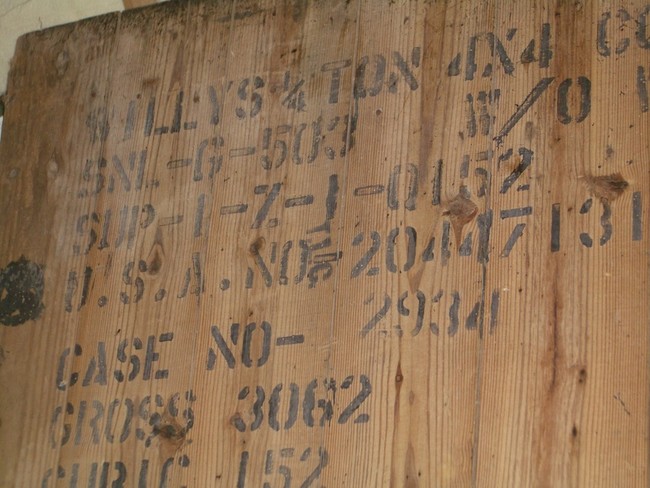 WILLYS ¼ TON 4X4 CO
SNL-G-503 W/O
SUP-1-Z-1-0152
U.S.A. NO- 20447131
CASE NO- 2934
GROSS 3062
CUBIC 152